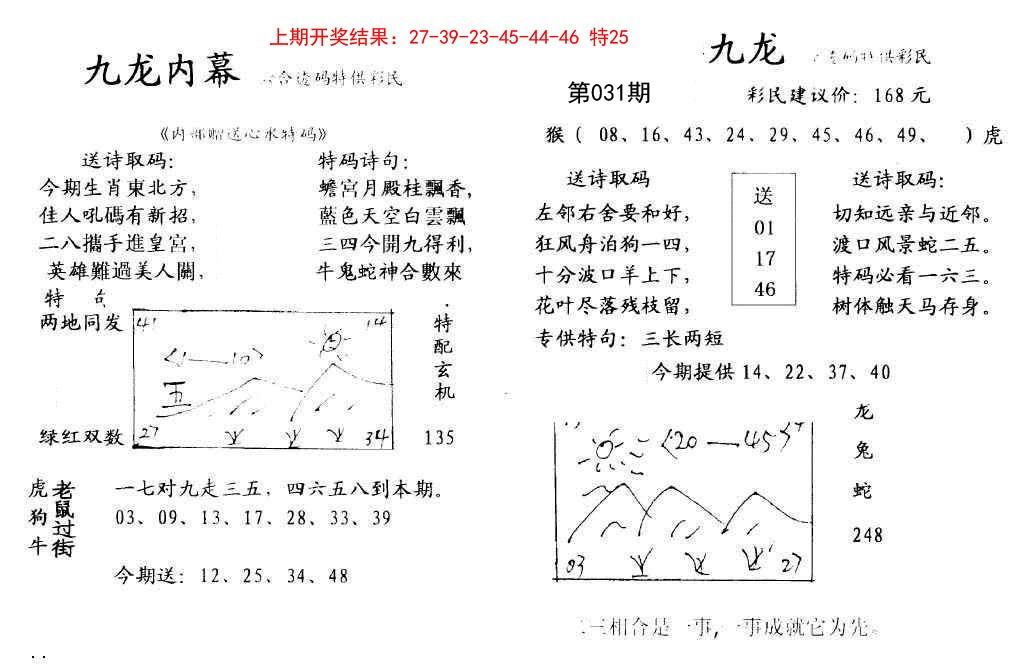 上期开奖结果：27-39-23-45-44-46 特25
九龙内幕
合造码特供彩民
《内部赠送心水特码》
送诗取码：
今期生肖東北方，
佳人吼碼有新招，
二八攜手進皇宮，
英雄難過美人關，
特码诗句：
蟾宮月殿桂飄香，
藍色天空白雲飄
三四今開九得利，
牛鬼蛇神合數來
特 句
两地同发
绿红双数
41
14
〈1—10〉
五
27
34
特配玄机
135
虎狗牛
老鼠过街
一七对九走三五，四六五八到本期。
03、09、13、17、28、33、39
今期送：12、25、34、48
九龙
码特供彩民
第031期
彩民建议价：168元
猴（ 08、16、43、24、29、45、46、49、 ）虎
送诗取码
左邻右舍要和好，
狂风舟泊狗一四，
十分波口羊上下，
花叶尽落残枝留，
送
01
17
46
送诗取码：
切知远亲与近邻。
渡口风景蛇二五。
特码必看一六三。
树体触天马存身。
专供特句：三长两短
今期提供14、22、37、40
〈20—45〉
03
27
龙
兔
蛇
248
二三相合是一事，一事成就它为先。